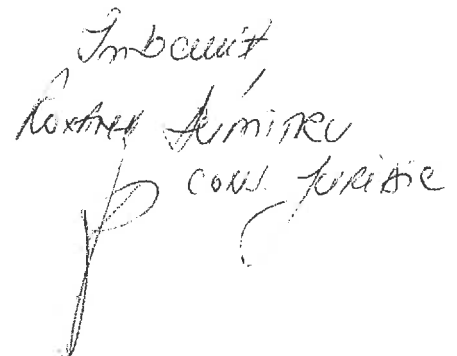 Întocmit,
Roxana Dumitru
cons. juridic